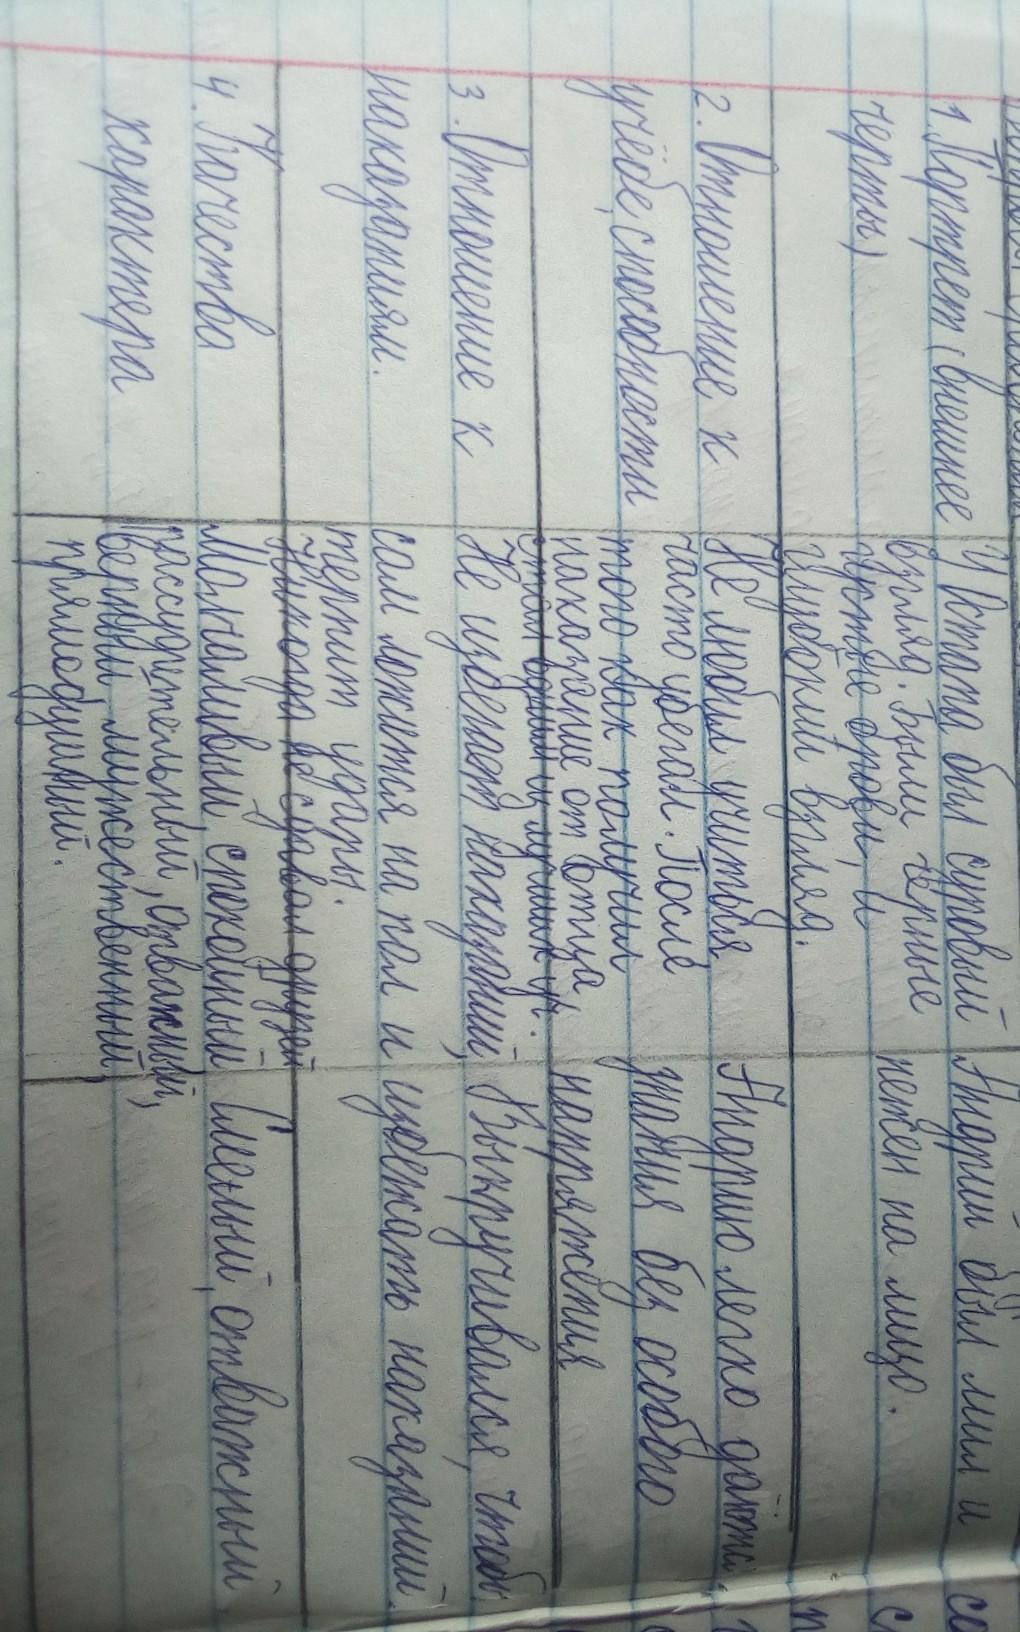 1. Портрет (внешнее
черты)
У Остапа был суровый
взгляд. Были чёрные
густые брови, и
глубокий взгляд.
Андрий был мил и
нежен на лицо.
2. Отношение к
учёбе, способности
Не любил учиться,
часто убегал. После
того как получил
наказание от отца
стал одним из лучших уч.
Андрию легко даютс
знания без особого
напряжения
3. Отношение к
наказаниям.
Не избегает наказаний,
сам ложится на пол и
терпит удары.
Никогда не сдавал друзей
Выкручивался, чтоб
избежать наказаний.
4. Качества
характера
Молчаливый, спокойный
рассудительный, отважный,
верный, мужественный,
прямодушный.
Смелый, отважный